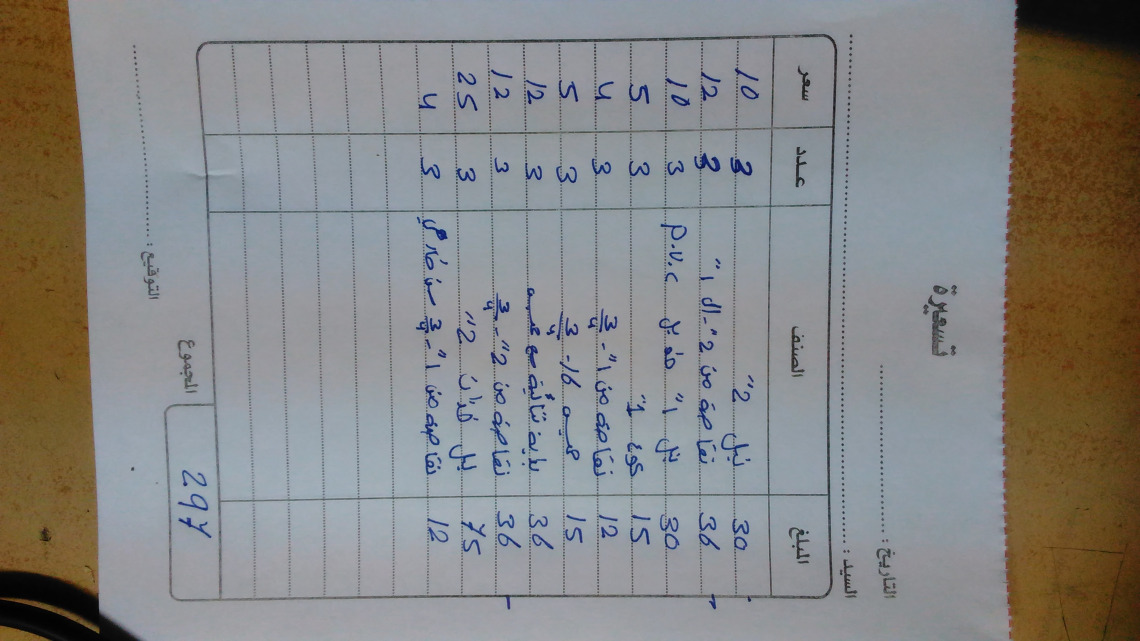 تسعيرة
التاريخ :
السيد :
سعر عدد الصنف المبلغ
10 3 نبل 2" 30
12 3 نقاصة من 2" - ال 1" 36
10 3 نبل 1" P.V.C 30
5 3 كوع 1" 15
4 3 نقاصة من 1" - 3/4 12
5 3 16 - 3/4 15
12 3 36
12 3 نقاصة من 2" - 3/4 36
25 3 نبل 2" 75
4 3 نقاصة من 1" - 3/4 12
المجموع
297
التوقيع :